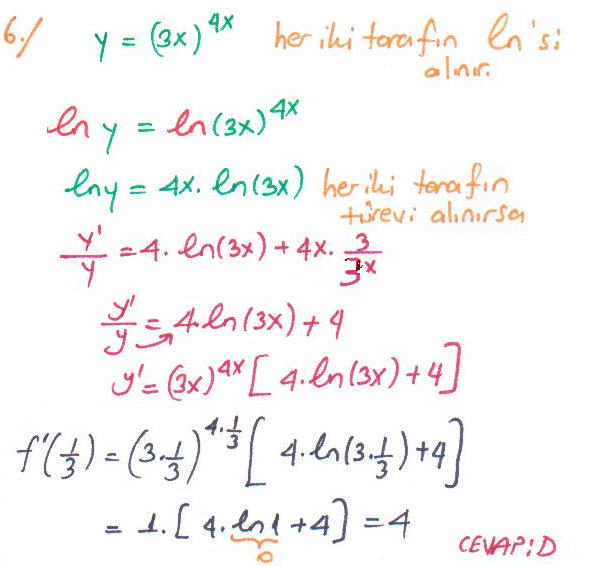 6./ y = (3x)^4x her iki tarafın ln'si
alınır.
ln y = ln(3x)^4x
lny = 4x. ln(3x) her iki tarafın
türevi alınırsa
y'/y = 4. ln(3x) + 4x. 3/3x
y'/y = 4.ln(3x) + 4
y' = (3x)^4x [4.ln(3x) + 4]
f'(1/3) = (3.1/3)^4.1/3 [4.ln(3.1/3) + 4]
= 1.[4.ln1 + 4] = 4
0
CEVAP:D